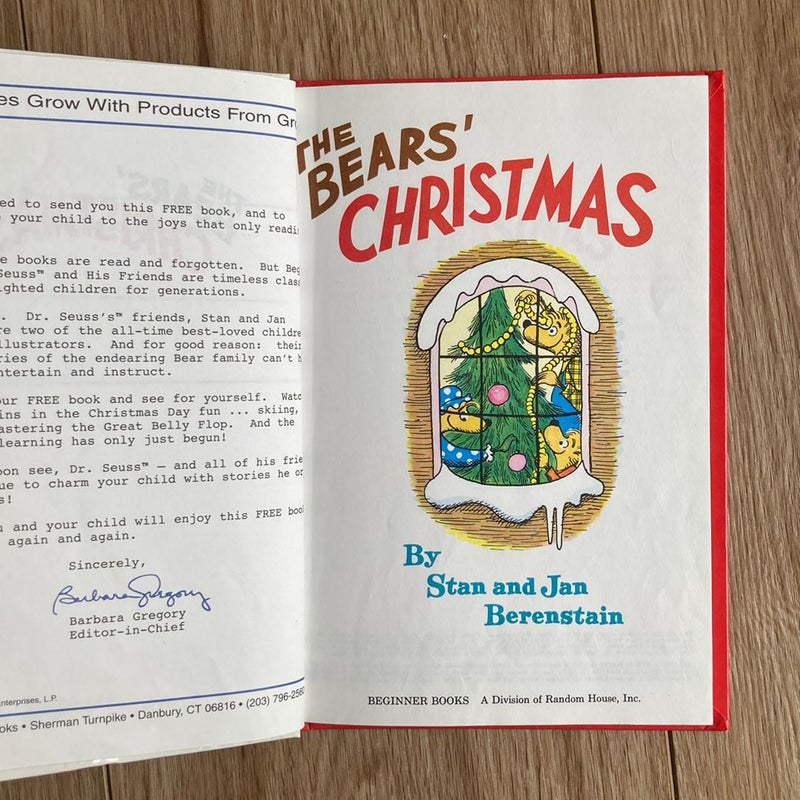 es Grow With Products From Gr
ed to send you this FREE book, and to
your child to the joys that only readi
e books are read and forgotten. But Beg
Seuss™ and His Friends are timeless clas
ighted children for generations.
. Dr. Seuss's™ friends, Stan and Jan
re two of the all-time best-loved childre
llustrators. And for good reason: their
ries of the endearing Bear family can't h
ntertain and instruct.
our FREE book and see for yourself. Watc
ins in the Christmas Day fun ... skiing,
astering the Great Belly Flop. And the
learning has only just begun!
oon see, Dr. Seuss™ — and all of his frie
ue to charm your child with stories he or
s!
n and your child will enjoy this FREE boo
again and again.
Sincerely,
Barbara Gregory
Barbara Gregory
Editor-in-Chief
Enterprises, L.P.
oks • Sherman Turnpike • Danbury, CT 06816 • (203) 796-2560
THE
BEARS'
CHRISTMAS
By
Stan and Jan
Berenstain
BEGINNER BOOKS A Division of Random House, Inc.